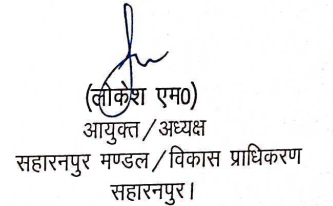 (लोकेश एम0)
आयुक्त / अध्यक्ष
सहारनपुर मण्डल / विकास प्राधिकरण
सहारनपुर।